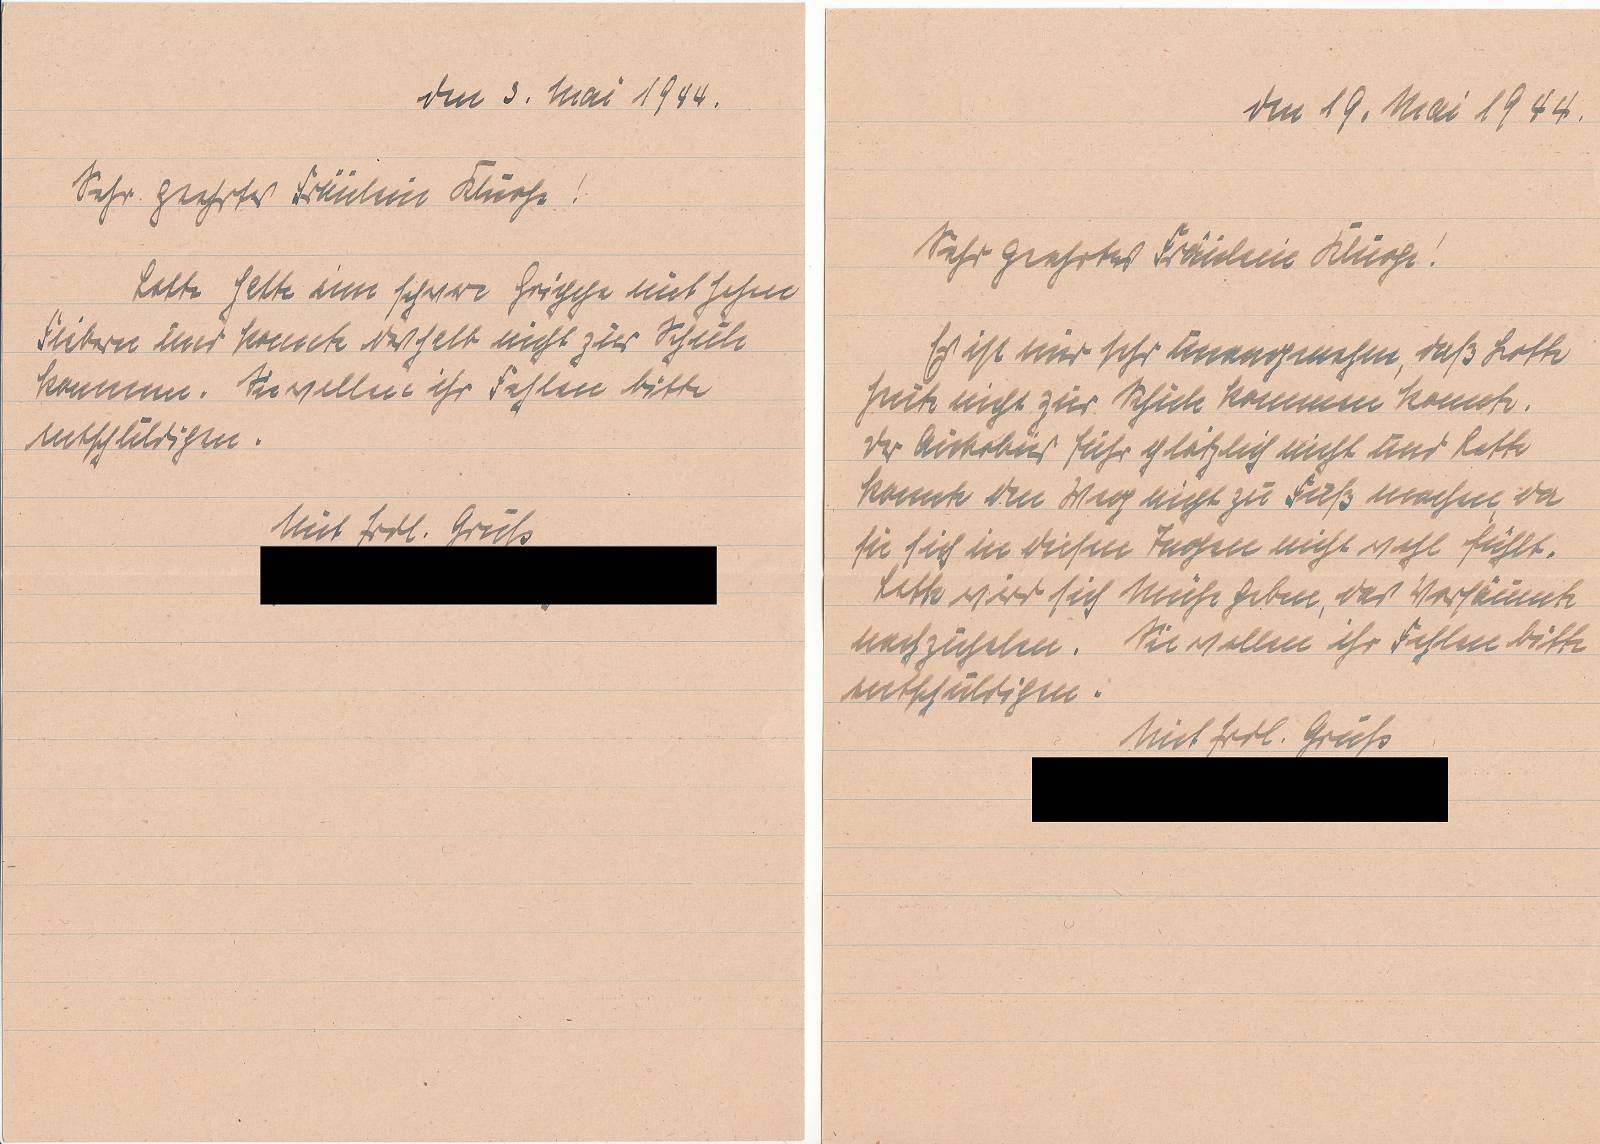 den 3. Mai 1944.
Sehr geehrtes Fräulein Kluge!
Lotte hatte eine schwere Grippe mit hohem
Fiebern und konnte deshalb nicht zur Schule
kommen. Sie wollen ihr Fehlen bitte
entschuldigen.
Mit frdl. Gruß
den 19. Mai 1944.
Sehr geehrtes Fräulein Kluge!
Es ist mir sehr unangenehm, daß Lotte
heute nicht zur Schule kommen konnte.
der Autobus fuhr plötzlich nicht und Lotte
konnte den Weg nicht zu Fuß machen, da
sie sich in diesen Tagen nicht wohl fühlt.
Lotte wird sich Mühe geben, das Versäumte
nachzuholen. Sie wollen ihr Fehlen bitte
entschuldigen.
Mit frdl. Gruß